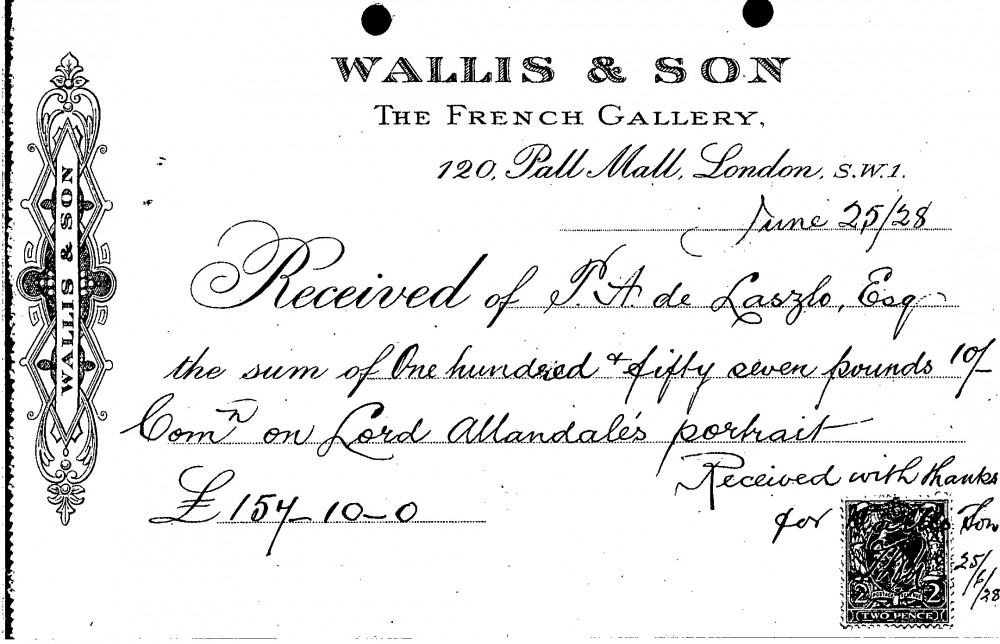 WALLIS & SON
THE FRENCH GALLERY,
120, Pall Mall, London, S.W.1.
WALLIS & SON
June 25/28
Received of P. A. de Laszlo, Esq
the sum of One hundred & fifty seven pounds 10/-
Comn on Lord Allandale's portrait
£ 157-10-0
Received with thanks
for Wallis & Son
25/6/28
2 POSTAGE REVENUE 2
TWO PENCE